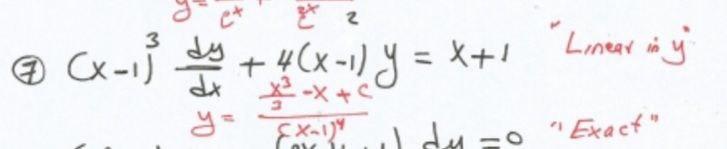 y= e^x 3x 2
⑦ (x-1)^3 dy/dx + 4(x-1) y = x+1 "Linear in y"
y= (x^3/3 -x +c)/(x-1)^4
dy =0 "Exact"